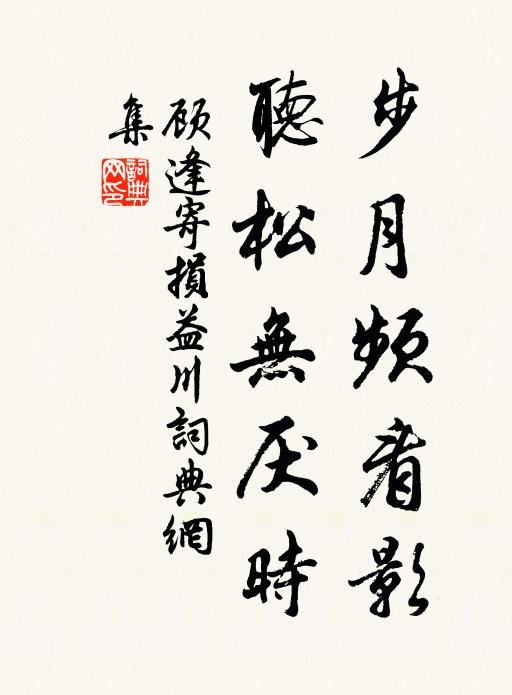 步月頻看影
聽松無厌時
顾逢寄損益川詞典網
集
詞典网印